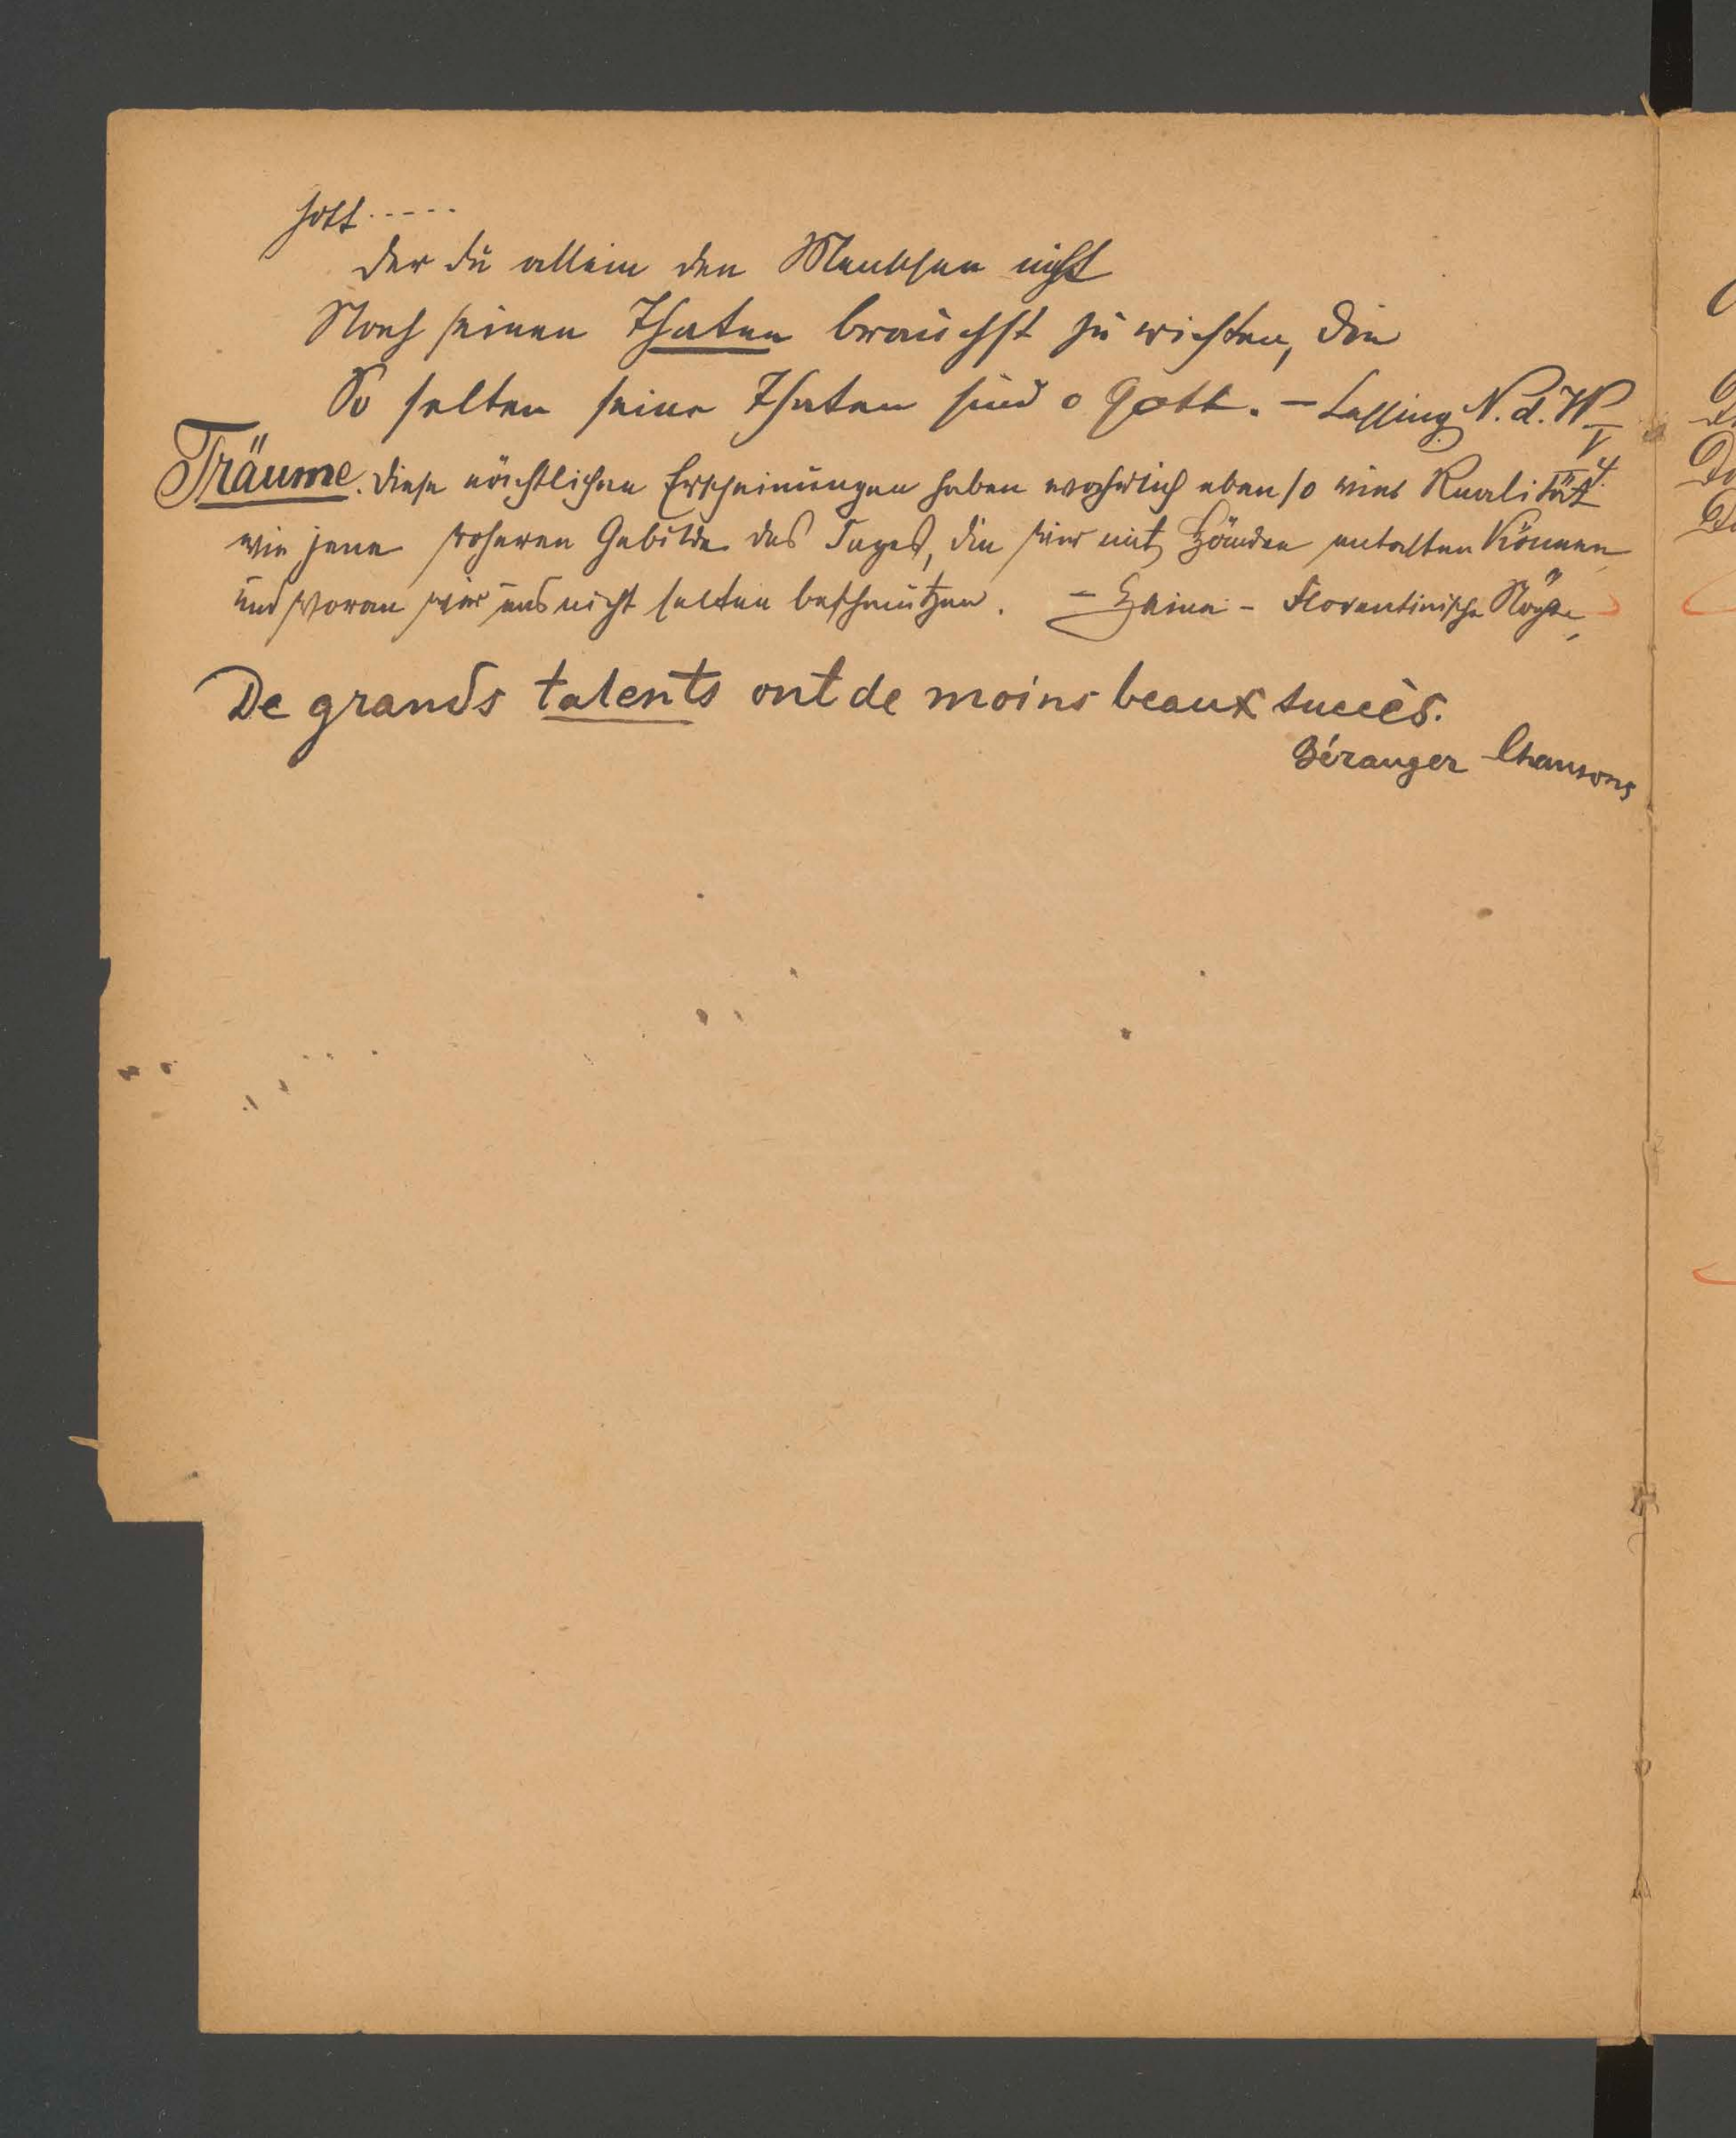 Gott.....
Der du allein den Menschen nicht
Nach seinen Thaten brauchst zu richten, die
So selten seine Thaten sind o Gott. – Lessing N. d. W
V
4.
Träume. Diese nächtlichen Erscheinungen haben wahrlich eben so viel Realität
wie jene roheren Gebilde des Tages, die wir mit Händen antasten können
und woran wir uns nicht selten beschmutzen. – Heine – Florentinische Nächte
De grands talents ont de moins beaux succès.
Béranger Chansons